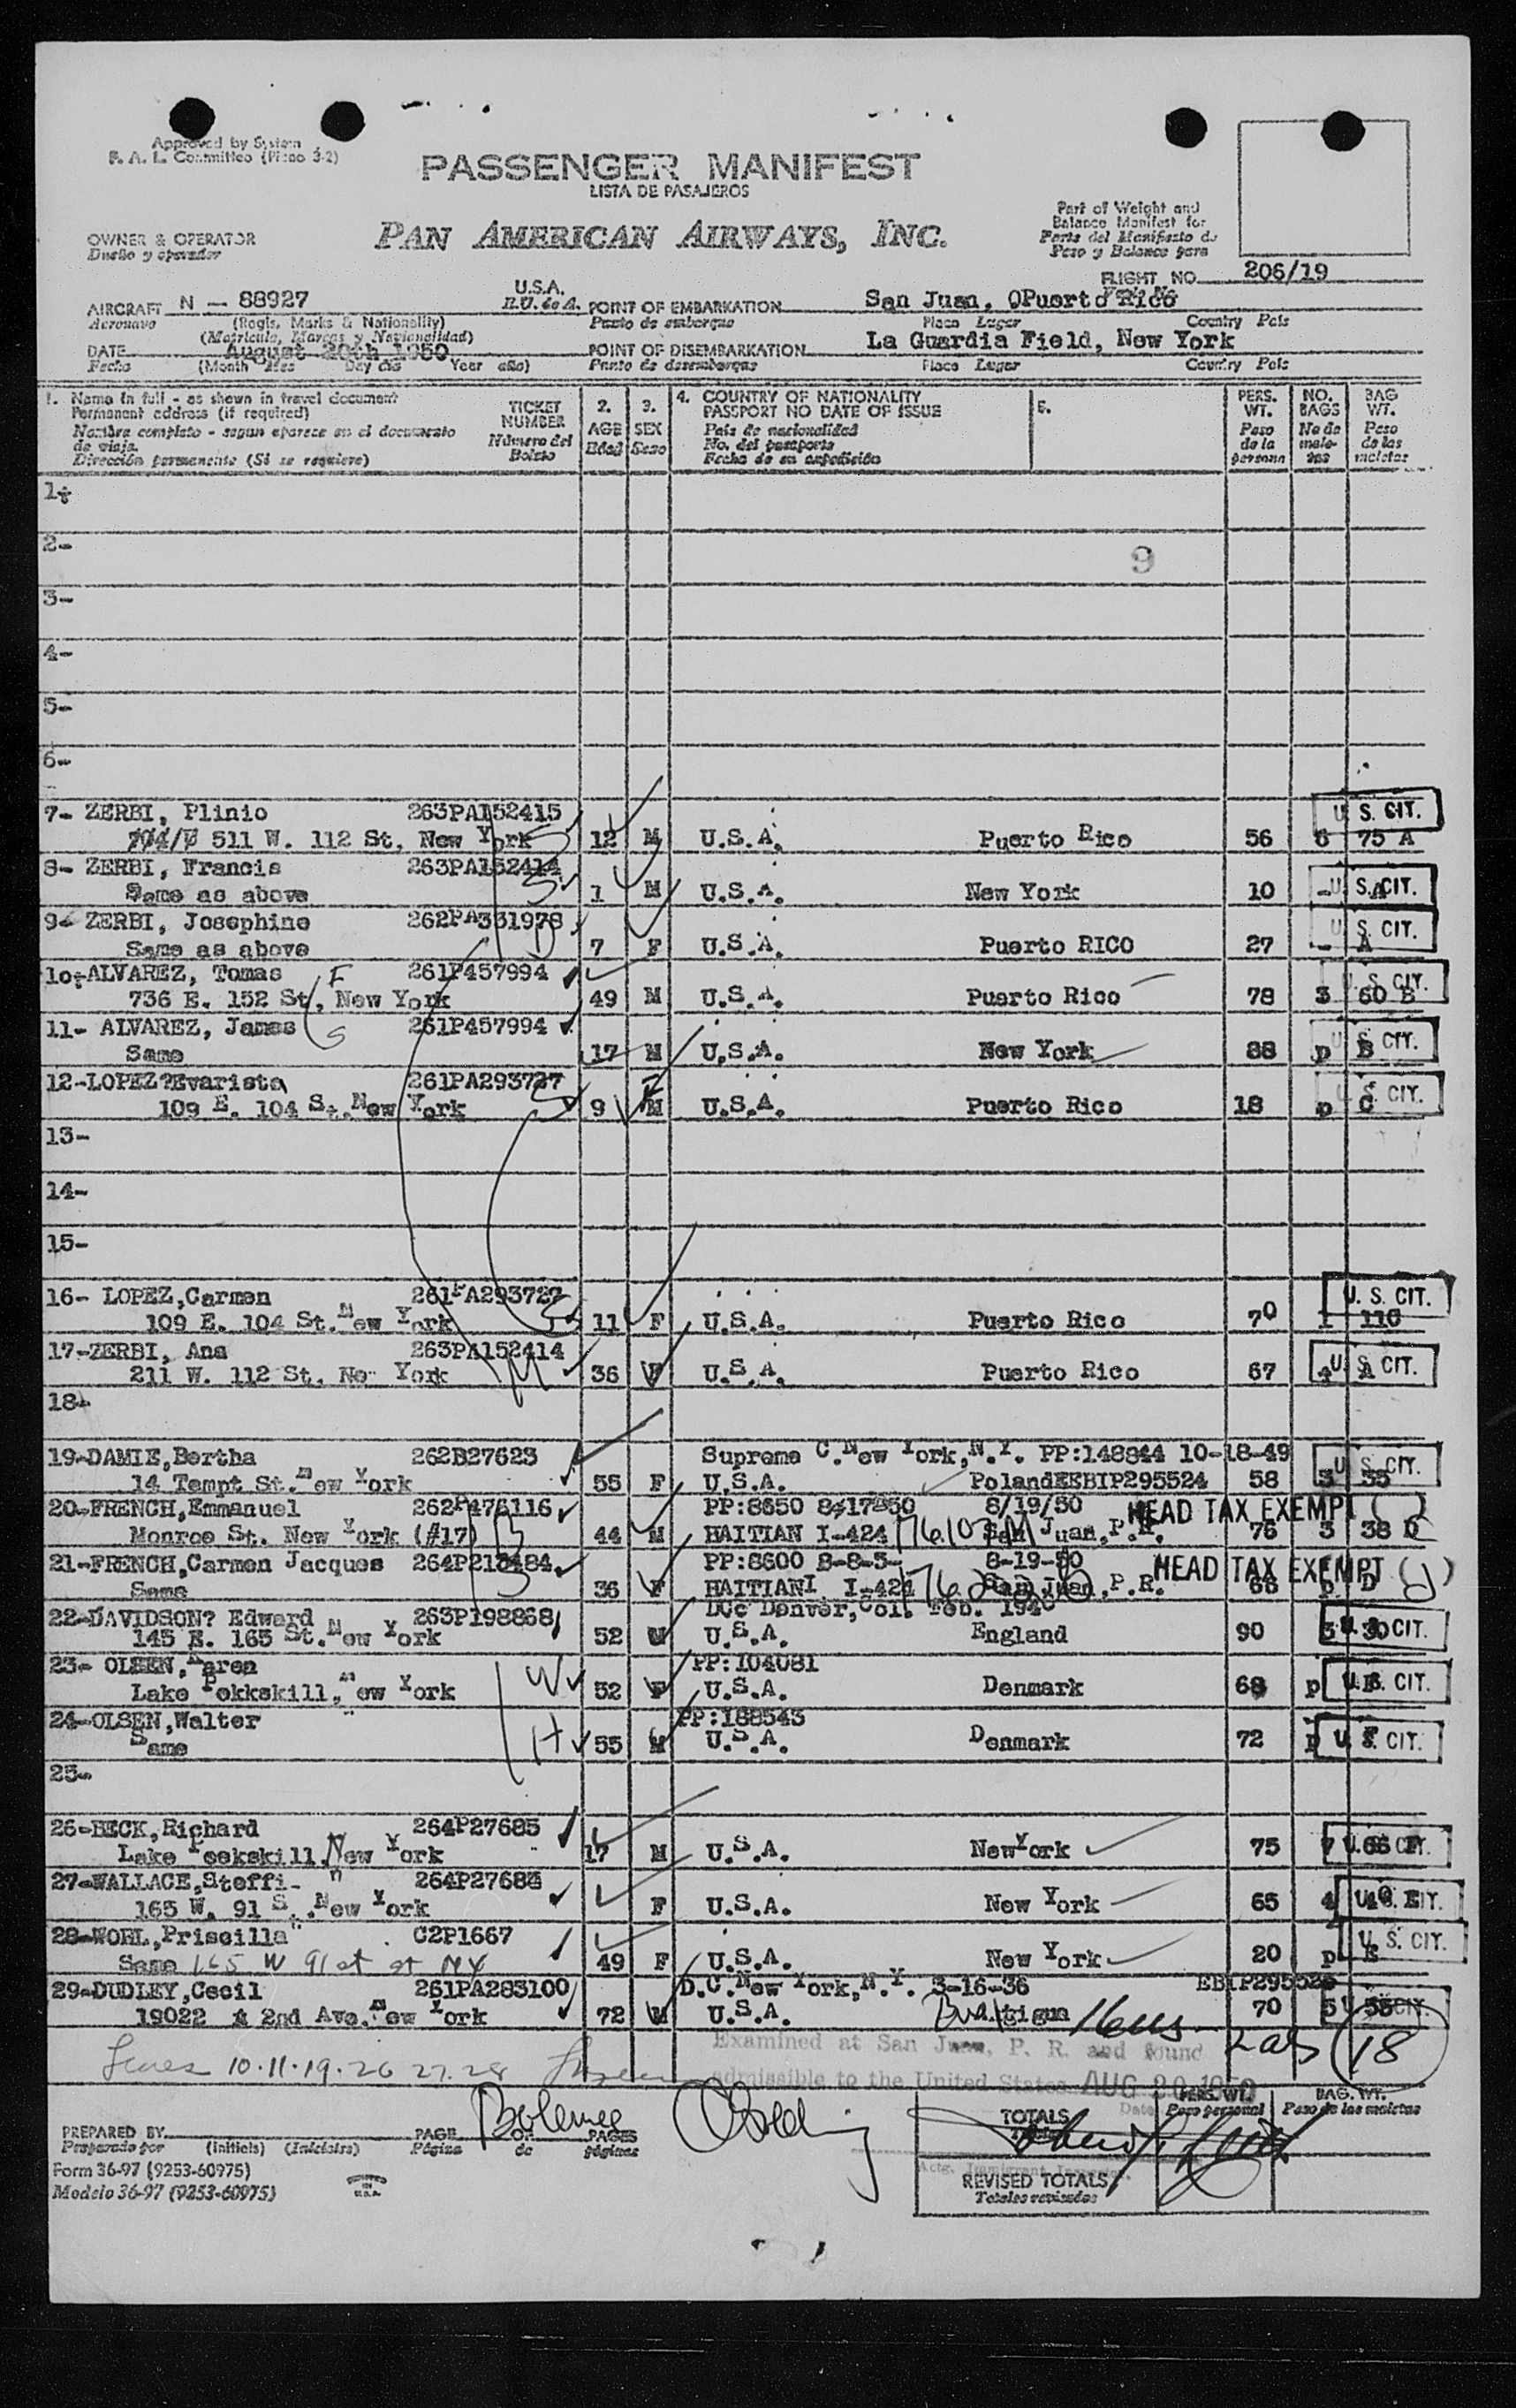 Approved by System
F. A. L. Committee (Picao 3-2)
PASSENGER MANIFEST
LISTA DE PASAJEROS
PAN AMERICAN AIRWAYS, INC.
OWNER & OPERATOR
Dueño y operador
Part of Weight and
Balance Manifest for
Parte del Manifiesto de
Peso y Balance para
FLIGHT NO. 206/19
AIRCRAFT N - 88927 U.S.A. POINT OF EMBARKATION San Juan, QPuerto Rico
Aeronave (Regis, Marks & Nationality) E.U. de A. Punto de embarque Place Lugar Country País
(Matricula, Marcas y Nacionalidad)
DATE August 20th 1950 POINT OF DISEMBARKATION La Guardia Field, New York
Fecha (Month Mes Day dia Year año) Punto de desembarque Place Lugar Country País
1. Name in full - as shown in travel document
Permanent address (if required)
Nombre completo - segun aparece en el documento
de viaje.
Dirección permanente (Si se requiere)
TICKET
NUMBER
Número del
Boleto
2.
AGE
Edad
3.
SEX
Sexo
4. COUNTRY OF NATIONALITY
PASSPORT NO DATE OF ISSUE
País de nacionalidad
No. del pasaporte
Fecha de su expedición
5.
PERS.
WT.
Peso
de la
persona
NO.
BAGS
No de
male-
tas
BAG
WT.
Peso
de las
maletas
1-
2-
9
3-
4-
5-
6-
7- ZERBI, Plinio 263PA152415 U. S. CIT.
511 W. 112 St, New York 12 M U.S.A. Puerto Rico 56 6 75 A
8- ZERBI, Francis 263PA152414
Same as above 1 M U.S.A. New York 10 - A U. S. CIT.
9- ZERBI, Josephine 262PA331978 U. S. CIT.
Same as above 7 F U.S.A. Puerto RICO 27 - A
10-ALVAREZ, Tomas F 261P457994 U. S. CIT.
736 E. 152 St, New York 49 M U.S.A. Puerto Rico 78 3 60 B
11- ALVAREZ, James S 261P457994 U. S. CIT.
Same 17 M U.S.A. New York 88 p B
12-LOPEZ?Evarista 261PA293727 U. S. CIT.
109 E. 104 St. New York 9 M U.S.A. Puerto Rico 18 p C
13-
14-
15-
16- LOPEZ,Carmen 261PA293727 U. S. CIT.
109 E. 104 St. New York 11 F U.S.A. Puerto Rico 70 1 11C
17-ZERBI, Ana 263PA152414
211 W. 112 St. New York M 36 F U.S.A. Puerto Rico 67 A U. S. CIT.
18-
19-DAMIE,Bertha 262B27623 Supreme C. New York, N.Y. PP:148944 10-18-49
14 Tempt St. New York 55 F U.S.A. PolandEEBIP295524 58 3 35 U. S. CIT.
20-FRENCH,Emmanuel 262P476116 PP:8650 8/17/50 8/19/50 HEAD TAX EXEMPT
Monroe St. New York (#17) 44 M HAITIAN I-424 San Juan, P.R. 76 3 38 D
21-FRENCH,Carmen Jacques 264P213484 PP:8600 8-8-5- 8-19-50 HEAD TAX EXEMPT
Same 36 F HAITIANI I-424 San Juan, P.R. 66 p D
22-DAVIDSON? Edward 263P198868 DCc Denver, Col. Feb. 194
145 E. 165 St. New York 52 M U.S.A. England 90 3 30 U. S. CIT.
23- OLSEN, Karen PP:104081
Lake Pekkskill, New York W 52 F U.S.A. Denmark 68 p U. S. CIT.
24-OLSEN,Walter " PP:188543
Same H 55 M U.S.A. Denmark 72 p U. S. CIT.
25-
26-BECK,Richard 264P27685
Lake Peekskill New York 17 M U.S.A. NewYork 75 7 66 F U. S. CIT.
27-WALLACE,Steffi- 264P27683
165 W. 91 S . New York F U.S.A. New York 65 4 40 E U. S. CIT.
28-WOHL,Priscilla C2P1667 U. S. CIT.
Same 165 W 91st st NY 49 F U.S.A. New York 20 p E
29-DUDLEY,Cecil 261PA283100 D.C. New York, N.Y. 3-16-36
19022 2nd Ave. New York 72 M U.S.A. 70 5 35 CIT.
10.11.19.26 27.28
Examined at San Juan, P. R. and found
admissible to the United States AUG 20 1950
Date
18
PREPARED BY
Preparado por (Initials) (Iniciales)
PAGE OF PAGES
Página de páginas
Form 36-97 (9253-60975)
Modelo 36-97 (9253-60975)
PRINTED
IN
U.S.A.
TOTALS
PERS. WT.
Peso personal
BAG. WT.
Peso de las maletas
Actg. Immigrant Inspector
REVISED TOTALS
Totales revisados